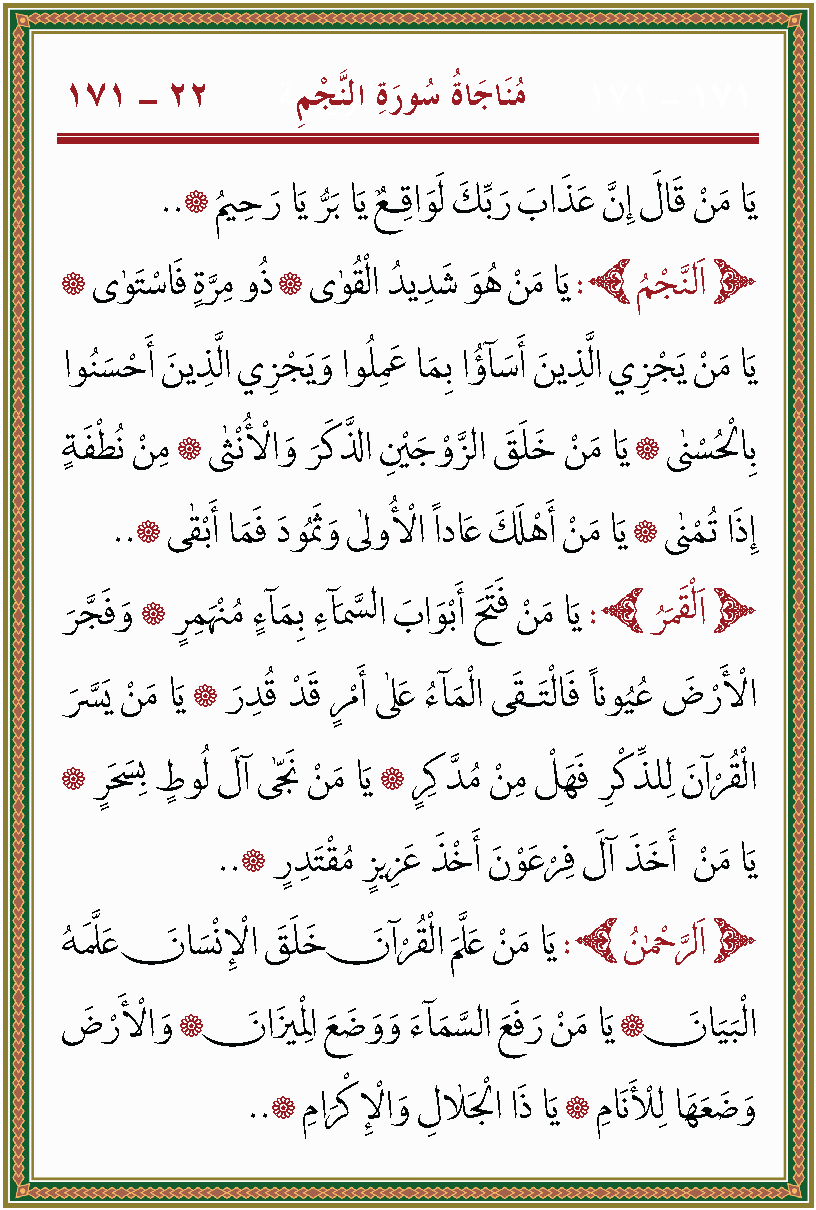 مُنَاجَاةُ سُورَةِ النَّجْمِ ٢٢ – ١٧١
يَا مَنْ قَالَ إِنَّ عَذَابَ رَبِّكَ لَوَاقِعٌ يَا بَرُّ يَا رَحِيمُ ۞..
﴿ اَلنَّجْمُ ﴾: يَا مَنْ هُوَ شَدِيدُ الْقُوٰى ۞ ذُو مِرَّةٍ فَاسْتَوٰى ۞
يَا مَنْ يَجْزِي الَّذِينَ أَسَآؤُا بِمَا عَمِلُوا وَيَجْزِي الَّذِينَ أَحْسَنُوا
بِالْحُسْنٰى ۞ يَا مَنْ خَلَقَ الزَّوْجَيْنِ الذَّكَرَ وَالْأُنْثٰى ۞ مِنْ نُطْفَةٍ
إِذَا تُمْنٰى ۞ يَا مَنْ أَهْلَكَ عَاداً الْأُولٰى وَثَمُودَ فَمَا أَبْقٰى ۞..
﴿ اَلْقَمَرُ ﴾: يَا مَنْ فَتَحَ أَبْوَابَ السَّمَآءِ بِمَآءٍ مُنْهَمِرٍ ۞ وَفَجَّرَ
الْأَرْضَ عُيُوناً فَالْتَقَى الْمَآءُ عَلٰى أَمْرٍ قَدْ قُدِرَ ۞ يَا مَنْ يَسَّرَ
الْقُرْآنَ لِلذِّكْرِ فَهَلْ مِنْ مُدَّكِرٍ ۞ يَا مَنْ نَجّٰى آلَ لُوطٍ بِسَحَرٍ ۞
يَا مَنْ أَخَذَ آلَ فِرْعَوْنَ أَخْذَ عَزِيزٍ مُقْتَدِرٍ ۞..
﴿ اَلرَّحْمٰنُ ﴾: يَا مَنْ عَلَّمَ الْقُرْآنَ خَلَقَ الْإِنْسَانَ عَلَّمَهُ
الْبَيَانَ ۞ يَا مَنْ رَفَعَ السَّمَآءَ وَوَضَعَ الْمِيزَانَ ۞ وَالْأَرْضَ
وَضَعَهَا لِلْأَنَامِ ۞ يَا ذَا الْجَلَالِ وَالْإِكْرَامِ ۞..